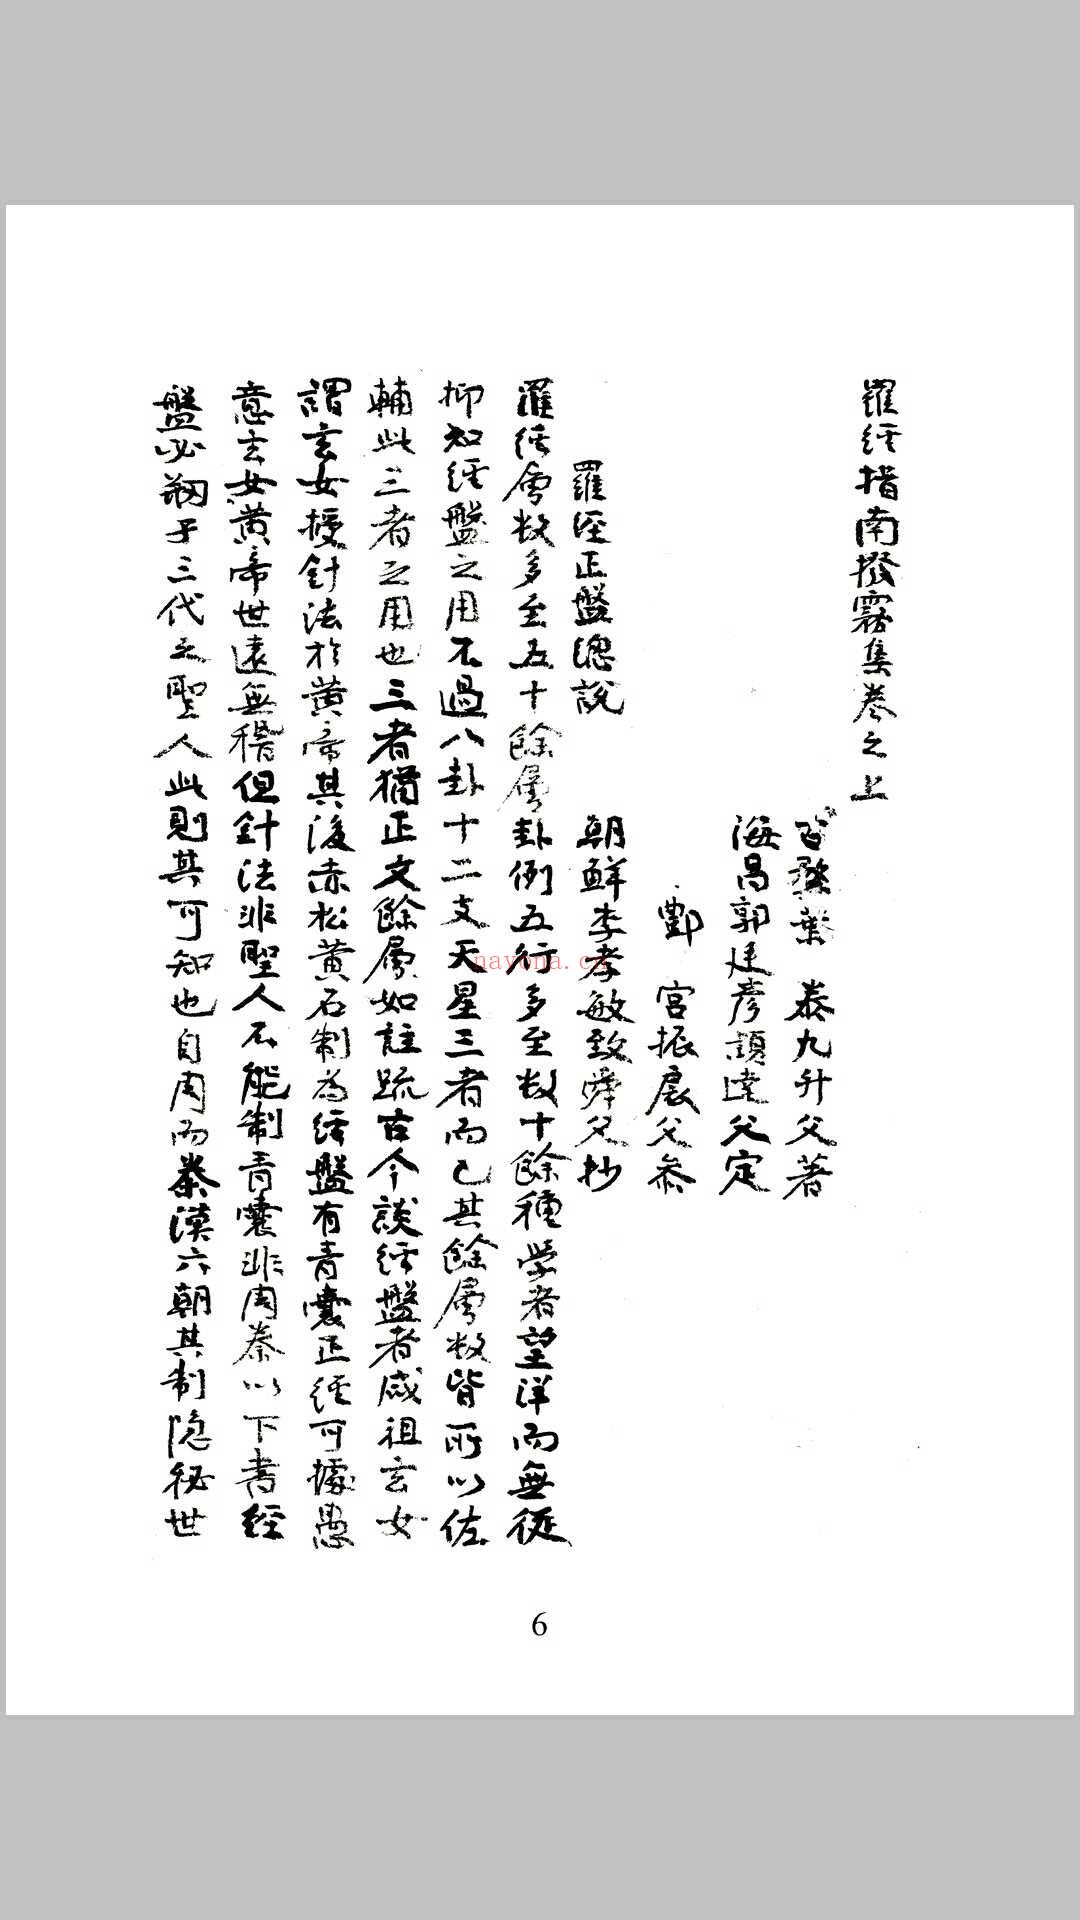 羅經指南撥霧集卷之上
葉 泰九升父著
海昌郭廷彥頴達父定
酆 宮振宸父叅
羅經正盤總說 朝鮮李孝敏致舜父抄
羅經層数多至五十餘層卦例五行多至数十餘種學者望洋而無從
抑知經盤之用不過八卦十二支天星三者而已其餘層数皆所以佐
輔此三者之用也三者猶正文餘層如註疏古今談經盤者咸祖玄女
謂玄女授針法於黄帝其後赤松黄石制為經盤有青囊正經可據愚
意玄女黄帝世遠無稽但針法非聖人不能制青囊非周秦以下書經
盤必刱于三代之聖人此則其可知也自周而秦漠六朝其制隐秘世
nayona.cn
6